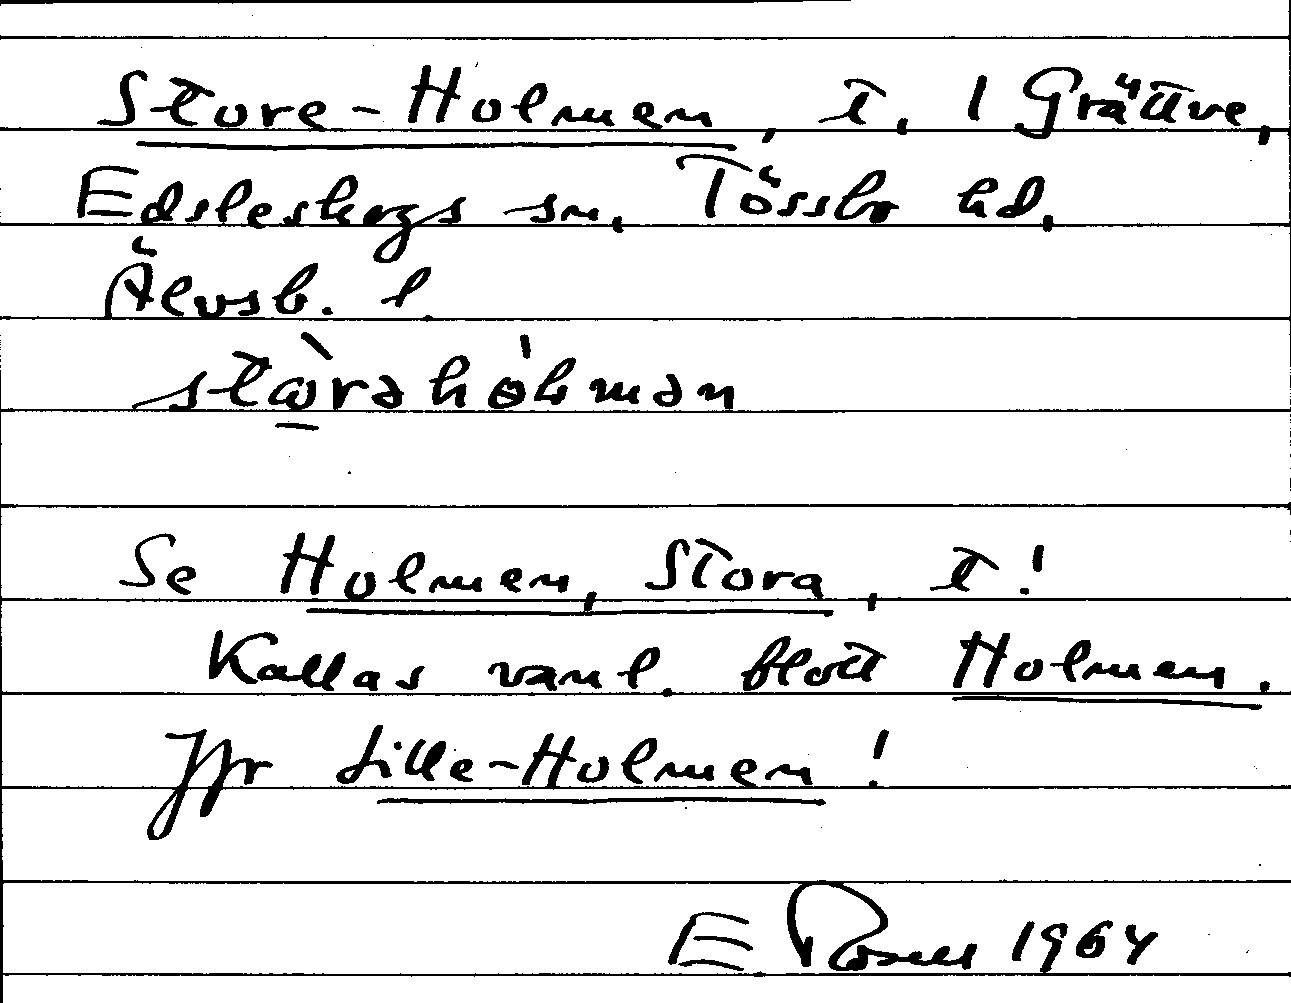 Store-Holmen, t. 1 Grättve,
Edsleskogs sn. Tössbo hd.
Älvsb. l.
Se Holmen, Stora, t!
Kallas vanl. blott Holmen.
Jfr Lille-Holmen!
E. 1964